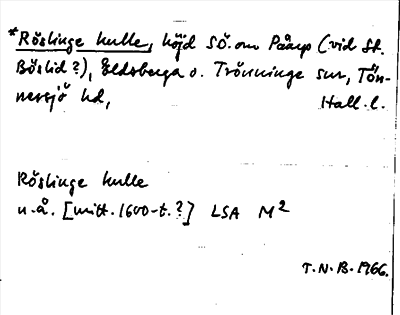 *Röslinge kulle, höjd SÖ. om Påarp (vid St.
Böslid?), Eldsberga o. Trönninge snr, Tön-
nersjö hd, Hall. l.
Röslinge kulle
u.å. [mitt. 1600-t.?] LSA M²
T.N.B. 1966.